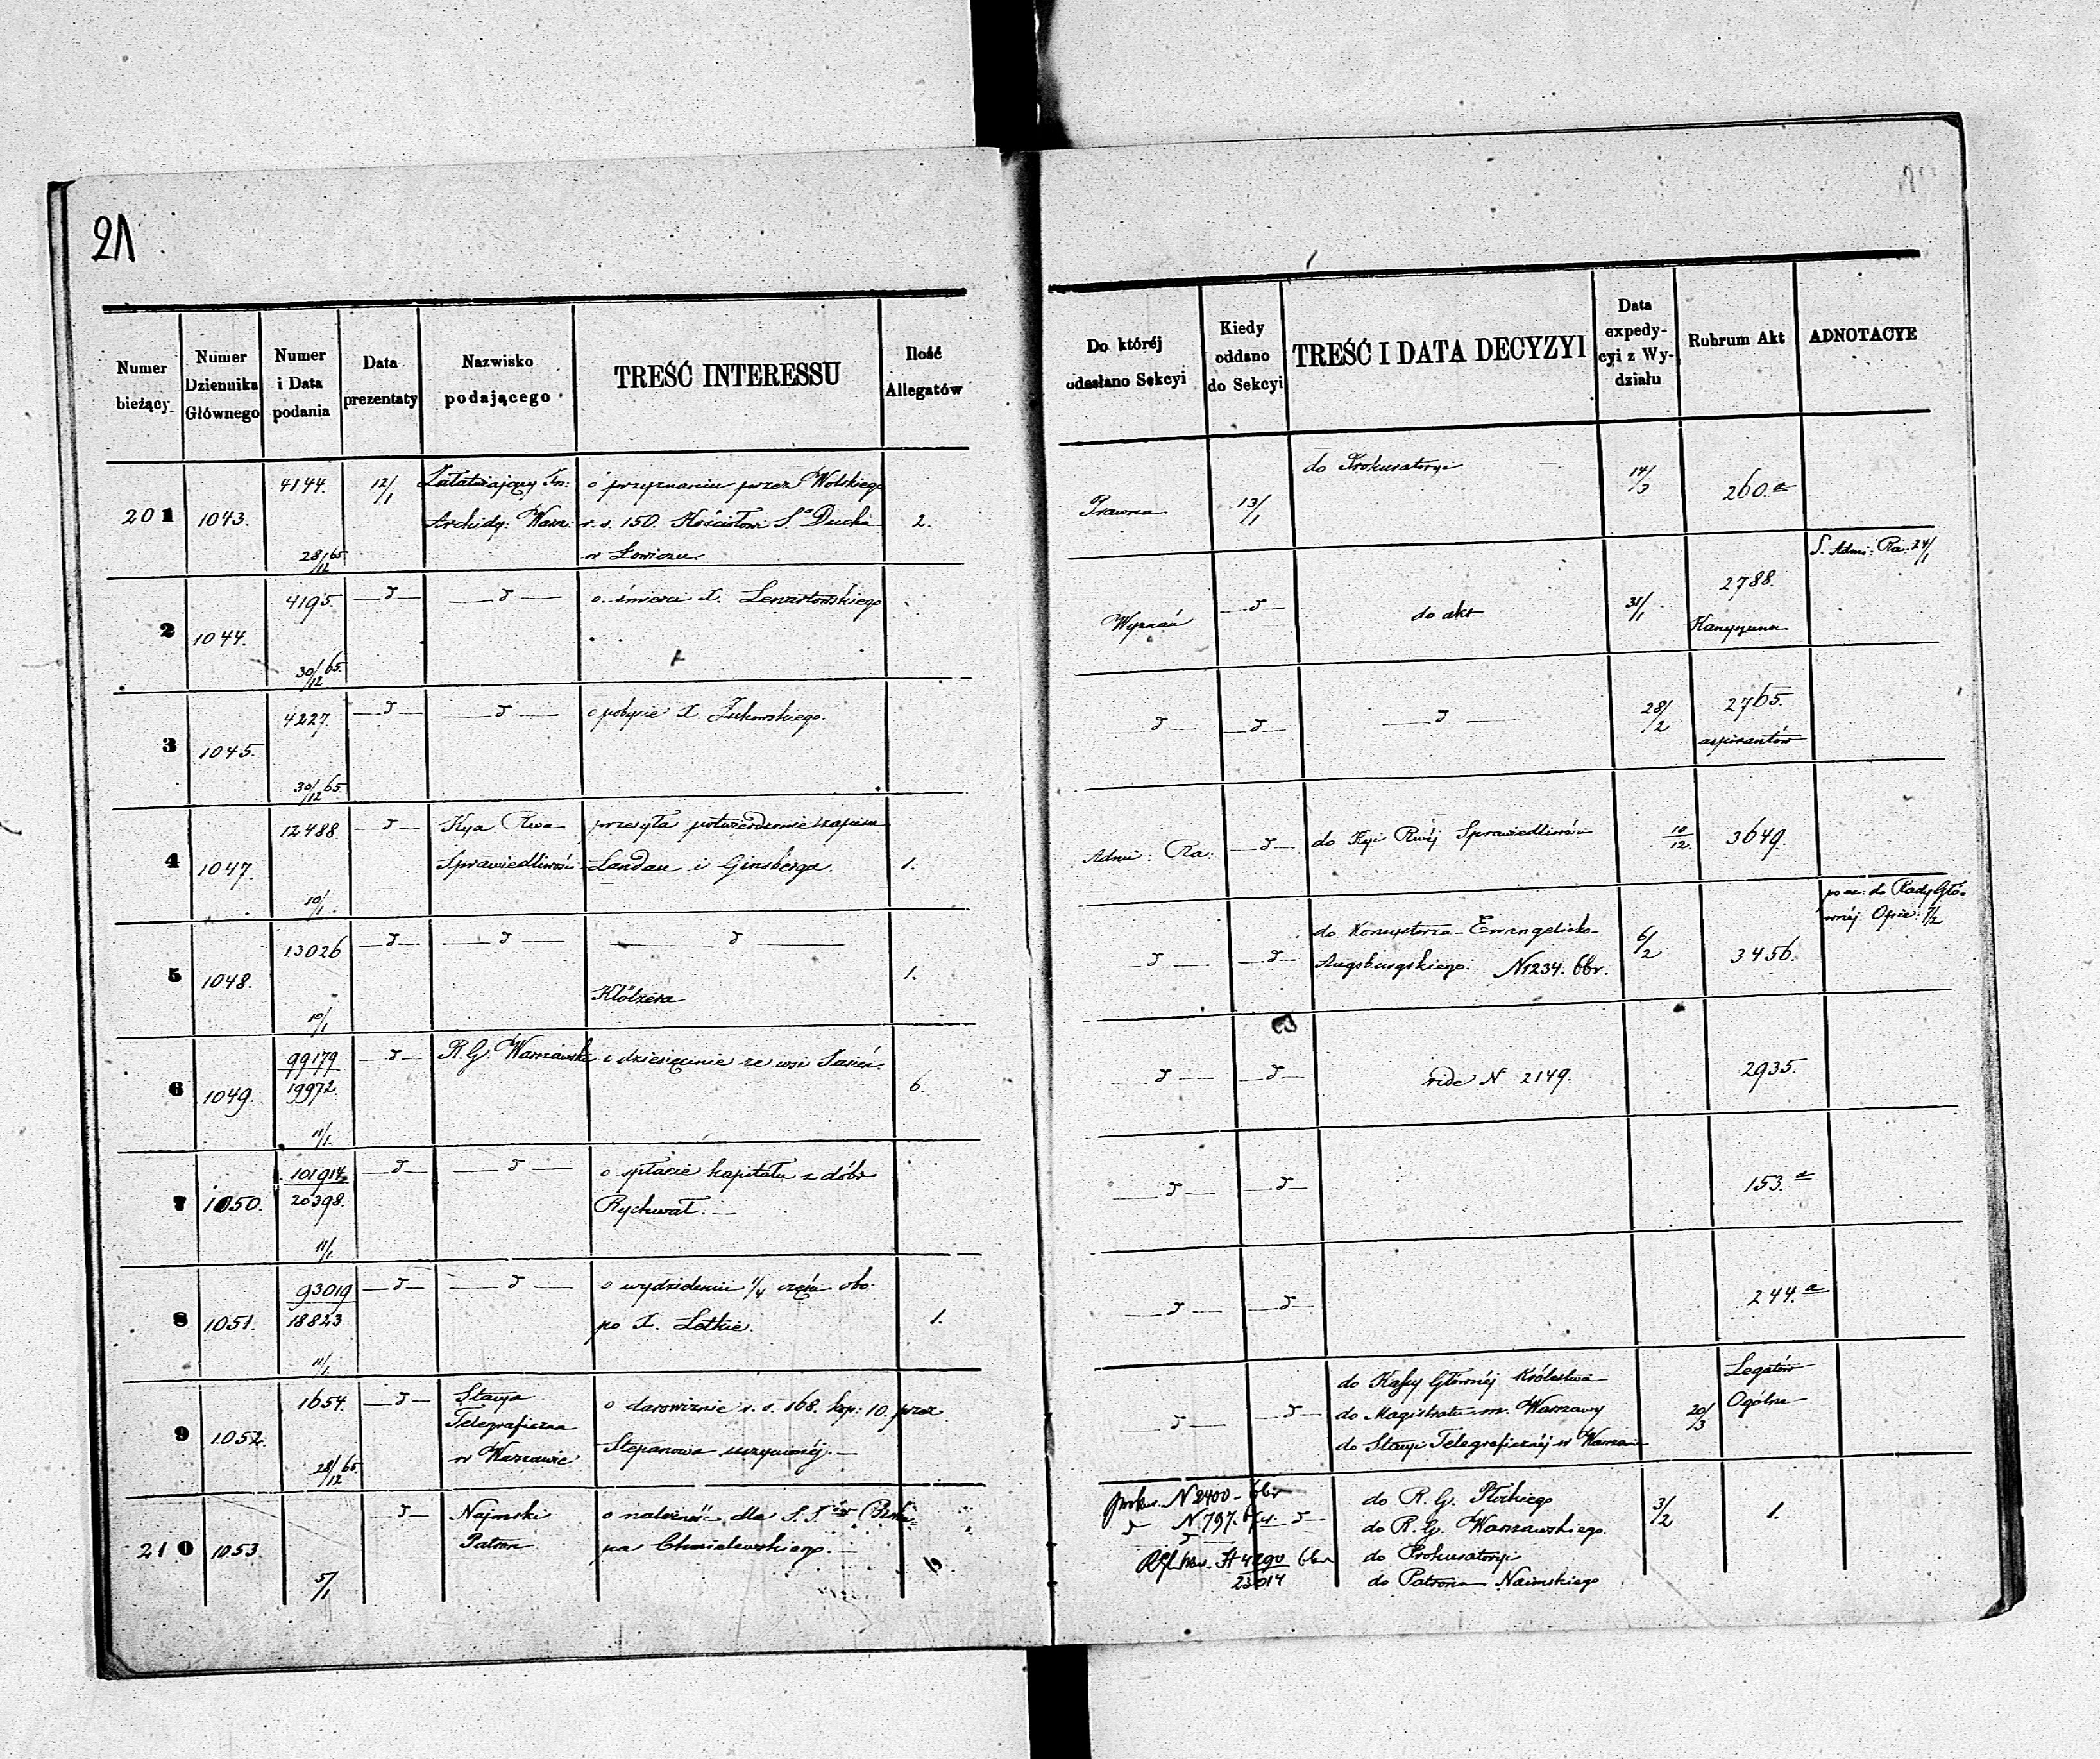 21
Numer bieżący
Numer Dziennika Głównego
Numer i Data podania
Data prezentaty
Nazwisko podającego
TREŚĆ INTERESSU
Ilość Allegatów
Do której odesłano Sekcyi
Kiedy oddano do Sekcyi
TREŚĆ I DATA DECYZYI
Data expedycyi z Wydziału
Rubrum Akt
ADNOTACYE
201
1043.
4144.
28/12 65.
12/1
Załatwiający In:
Archidy: Warsz:
o przyznaniu przez Wolskiego
r. s. 150. Kościołowi S.o Ducha
w Łowiczu.
2.
Prawna
13/1
do Prokuratoryi
14/3
260.a
2
1044.
4195.
30/12 65.
—d—
—d—
o śmierci X.
Wyznań
—d—
do akt
31/1
2788.
S. Admi: Ra. 24/1
3
1045.
4227.
30/12 65.
—d—
—d—
o pobycie X. Żukowskiego.
—d—
—d—
—d—
28/2
2765.
aspirantów
4
1047.
12488.
10/1
—d—
Kya Rwa
Sprawiedliwości
przesyła potwierdzenie zapisu
Landau i Ginsberga.
1.
Admi: Ra:
—d—
do Kyi Rwéj Sprawiedliwości
10/12.
3649.
5
1048.
13026
10/1
—d—
—d—
—d—
Klötzera
1.
—d—
—d—
do Konsystorza Ewangelicko-
Augsburgskiego. N 1234. bbr.
6/2
3456.
do Rady Głó-
wnéj Opie: 7/2
6
1049.
99179
19972.
11/1.
—d—
R. G. Warszawski
o dziesięcinie ze wsi
6.
—d—
—d—
vide N 2149.
2935.
7
1050.
101914
20398.
11/1.
—d—
—d—
o spłacie kapitału z dóbr
Rychwał. —
—d—
—d—
153.a
8
1051.
93019
18823
11/1.
—d—
—d—
o wydzieleniu 1/4 części obo.
po X. Letkie.
1.
—d—
—d—
244.a
9
1052.
1654.
28/12 65.
—d—
Stacya
Telegraficzna
w Warszawie
o darowiznie r. s. 168. kop: 10. przez
Stepanowa uczynionéj. —
—d—
—d—
do Kassy Głównéj Królestwa
do Magistratu m. Warszawy
do Stacyi Telegraficznéj w Warszawie
20/3
Legatów
Ogólne
210
1053.
5/1
—d—
Najmski
Patron
o należność dla
pa Chmielewskiego. —
N 2400 - bbr
N 797.
—d—
4290
23014
do R. G. Płockiego
do R. G. Warszawskiego.
do Prokuratoryi
do Patrona Naimskiego
3/2
1.